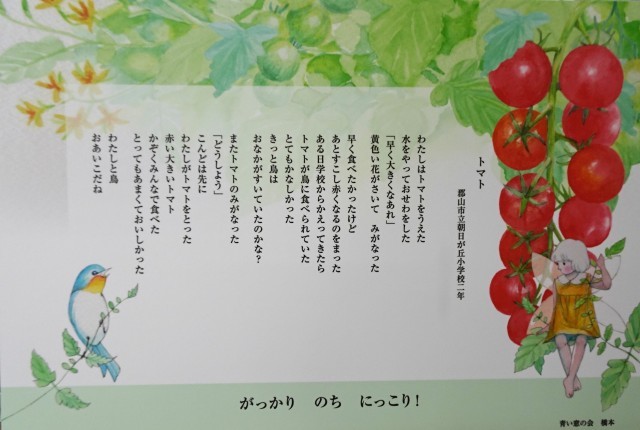 トマト
郡山市立朝日が丘小学校二年
わたしはトマトをうえた
水をやっておせわをした
「早く大きくなあれ」
黄色い花がさいて　みがなった
早く食べたかったけど
あとすこし赤くなるのをまった
ある日学校からかえってきたら
トマトが鳥に食べられていた
とてもかなしかった
きっと鳥は
おなかがすいていたのかな？
またトマトのみがなった
「どうしよう」
こんどは先に
わたしがトマトをとった
赤い大きいトマト
かぞくみんなで食べた
とってもあまくておいしかった
わたしと鳥
おあいこだね
がっかり　のち　にっこり！
青い窓の会　橋本